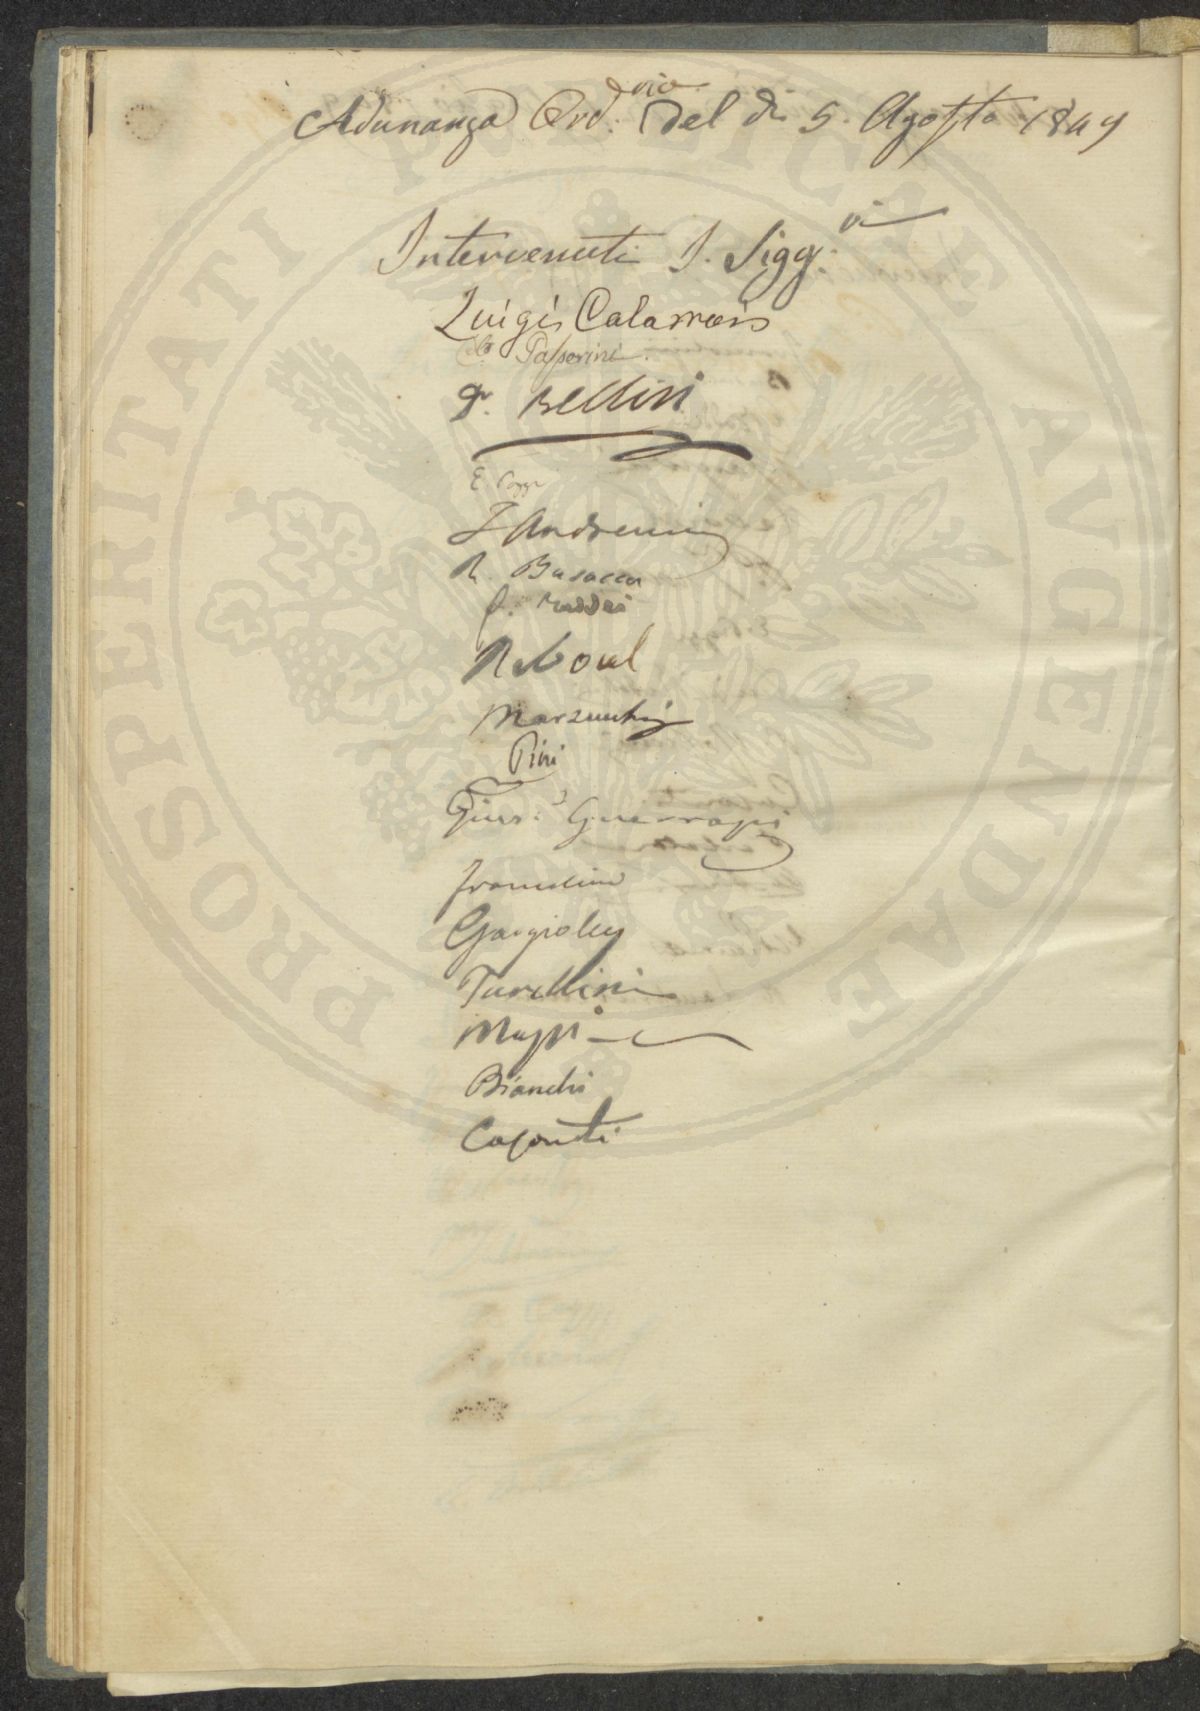 Adunanza Ord.ria del dì 5. Agosto 1849
Intervenuti I. Sigg.ri
Luigi Calamai
Passerini
Bellini
E. Poggi
Andreini
R. Busacca
Taddei
Reboul
Marzucchi
Pini
Gius.
Gargiolly
Turchini
Bianchi
Caponti
PROSPERITATI PUBLICAE AVGENDAE